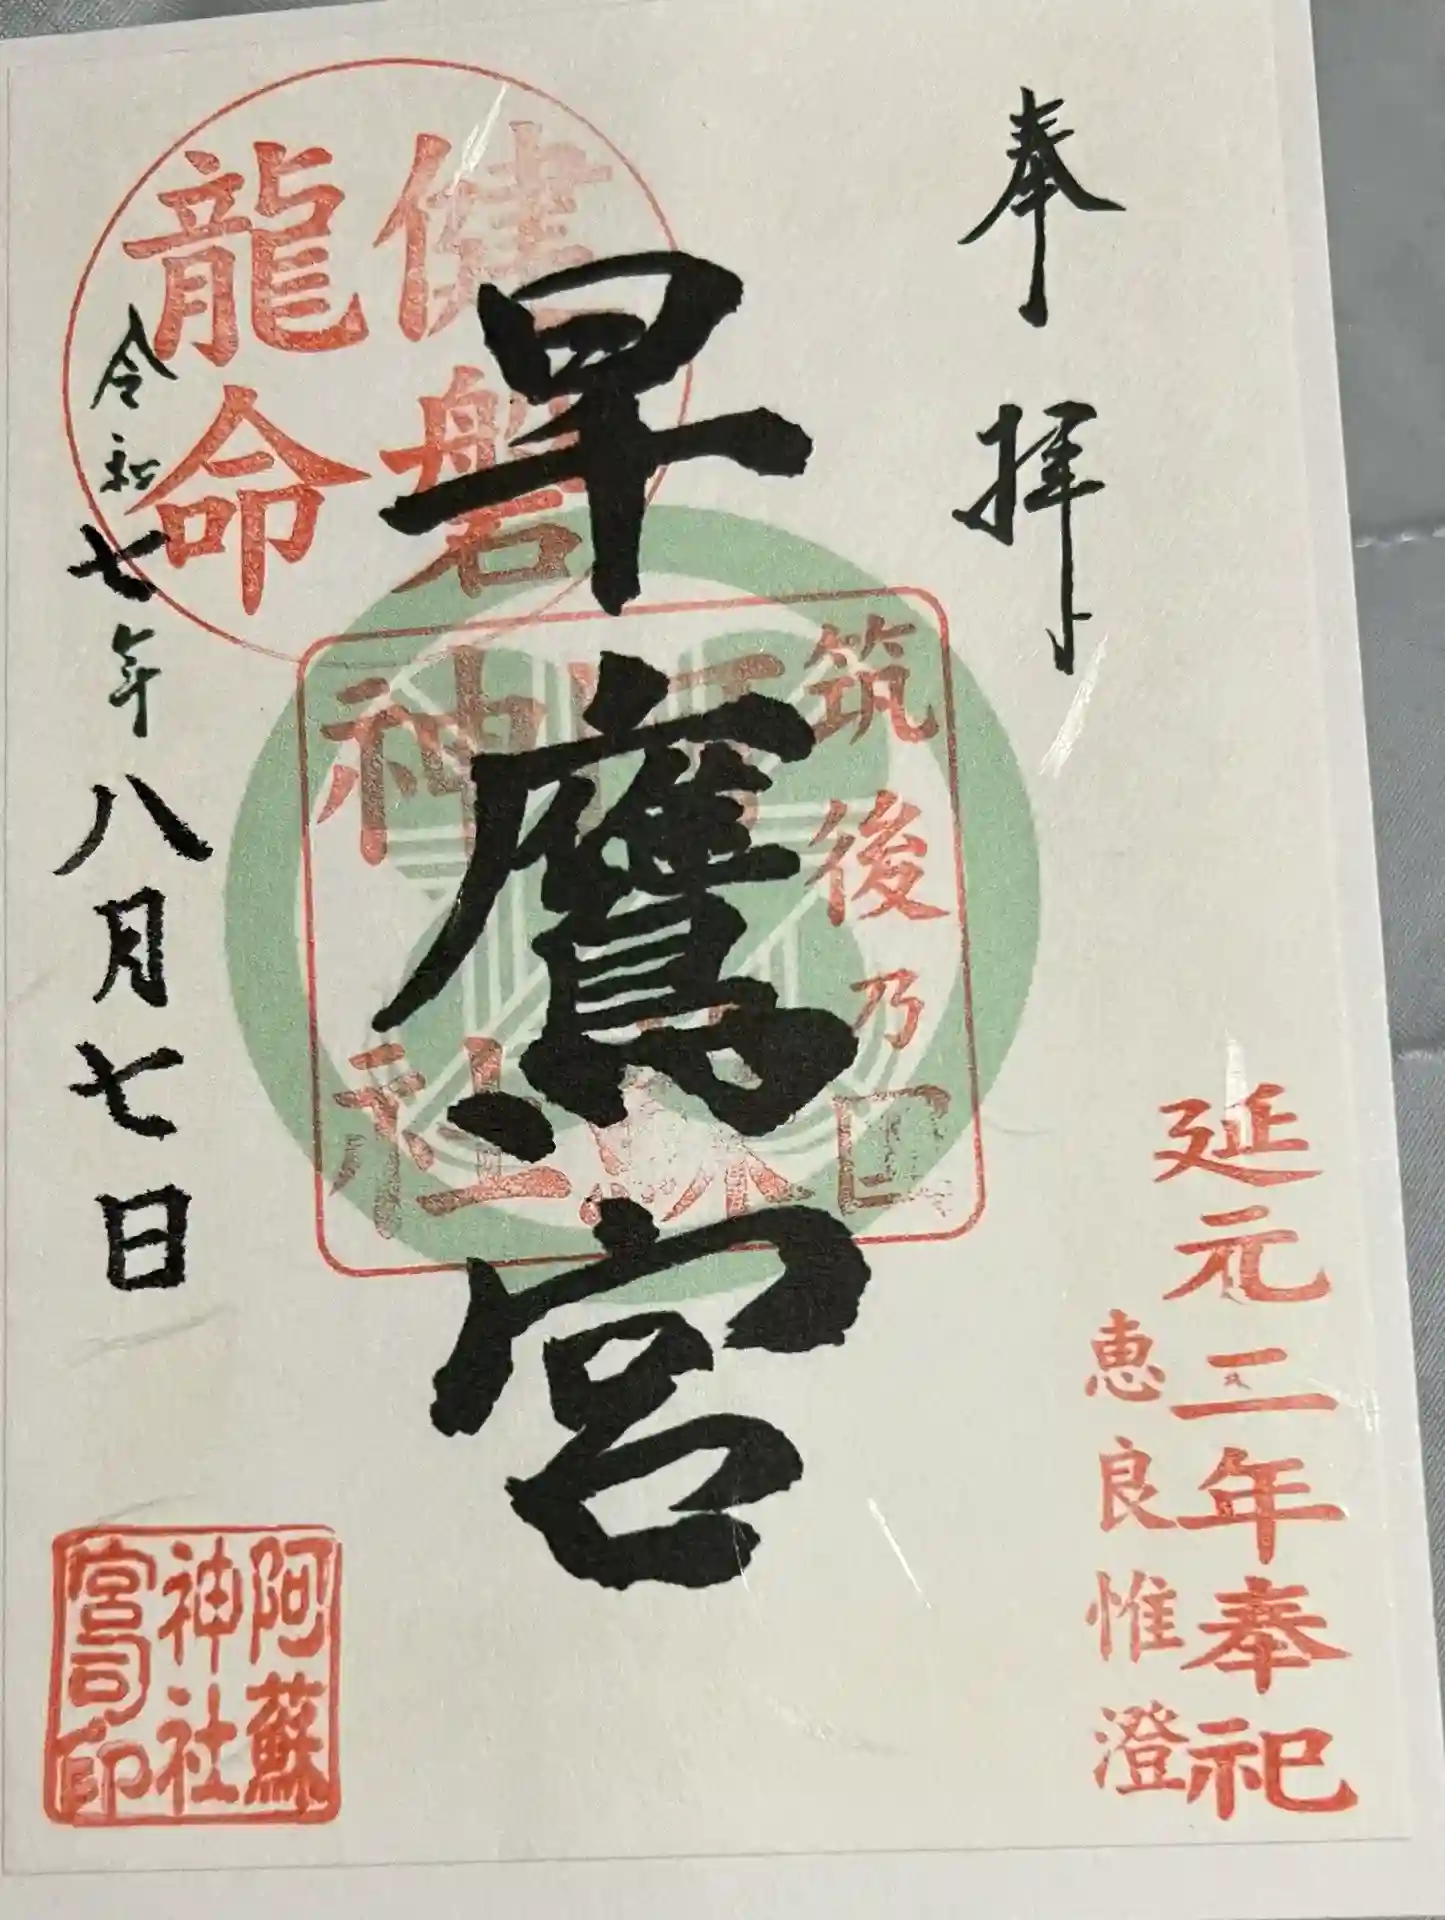 奉拝
延元二年奉祀
恵良惟澄
早鷹宮
健磐
龍命
筑後乃国
阿蘇
神社
令和七年八月七日
阿蘇
神社
宮司印